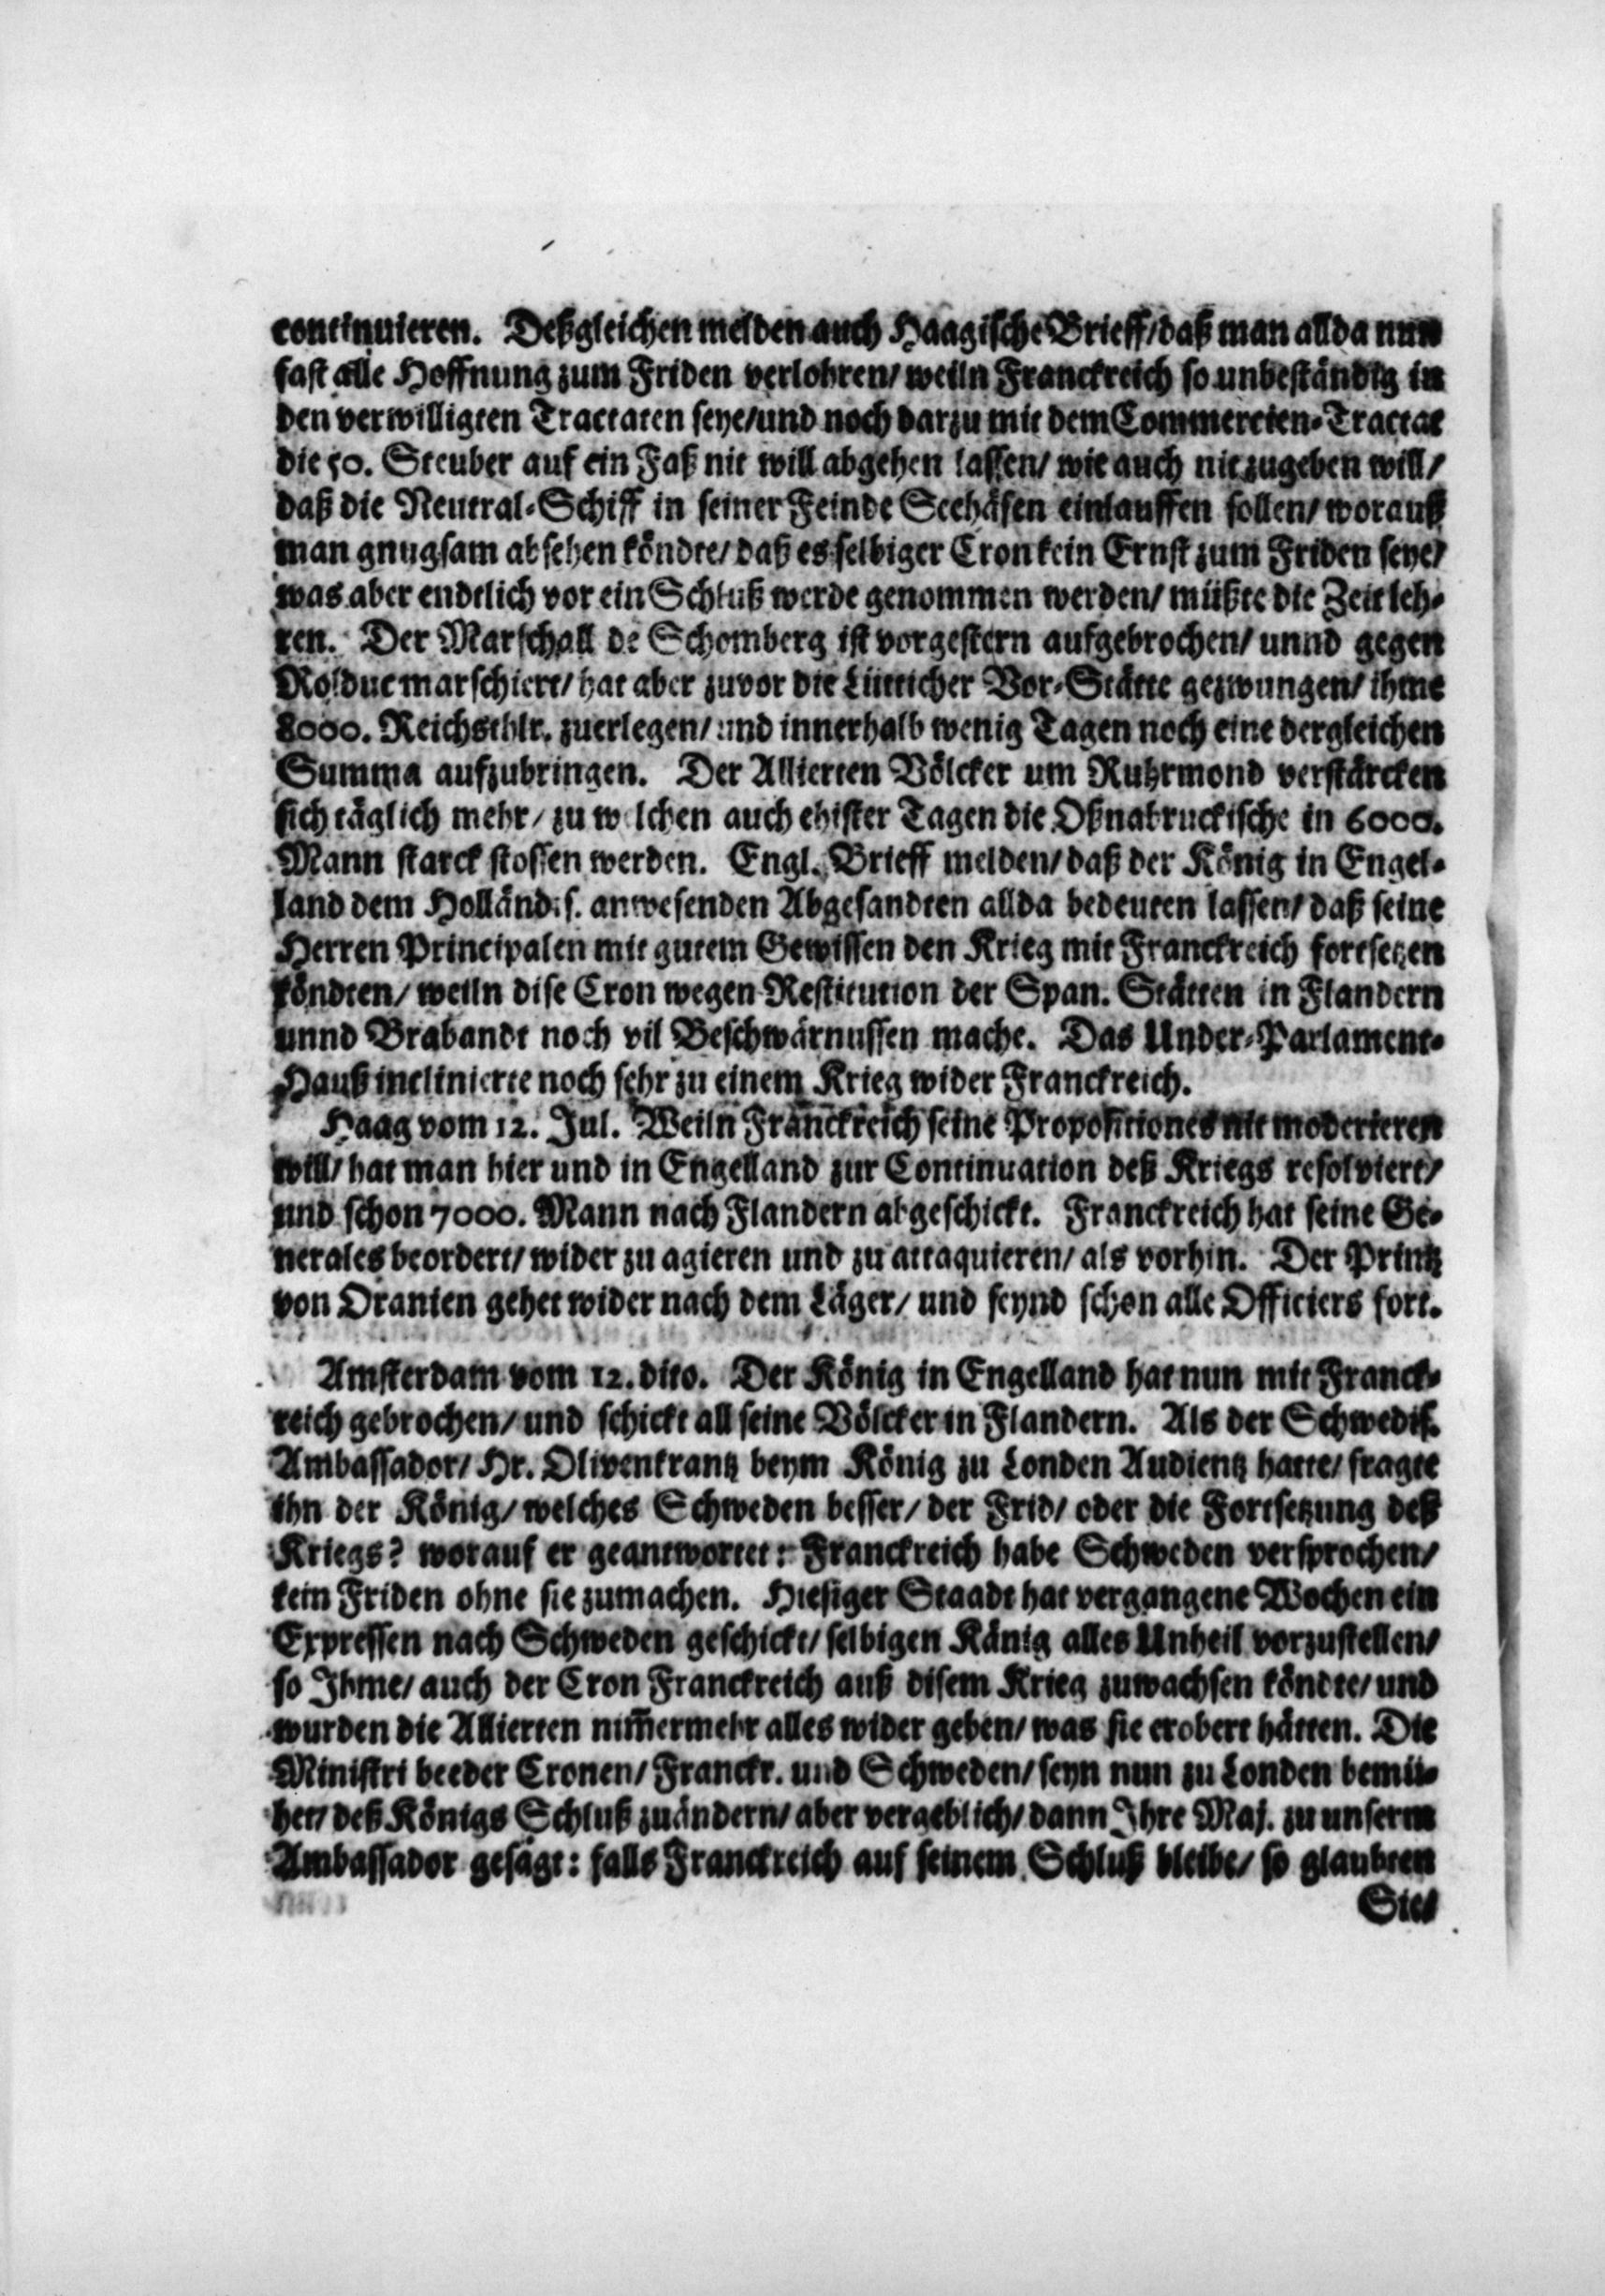 continuieren. Deßgleichen melden auch Haagische Brieff/ daß man allda nun
fast alle Hoffnung zum Friden verlohren/ weiln Franckreich so unbeständig in
den verwilligten Tractaten seye/ und noch darzu mit dem Commercien-Tractat
die 50. Steuber auf ein Faß nit will abgehen lassen/ wie auch nit zugeben will/
daß die Neutral-Schiff in seiner Feinde Seehäfen einlauffen sollen/ worauß
man gnugsam absehen köndte/ daß es selbiger Cron kein Ernst zum Friden seye/
was aber endtlich vor ein Schluß werde genommen werden/ müßte die Zeit leh-
ren. Der Marschall de Schomberg ist vorgestern aufgebrochen/ unnd gegen
Rolduc marschiert/ hat aber zuvor die Lütticher Vor-Stätte gezwungen/ ihme
8000. Reichsthlr. zuerlegen/ und innerhalb wenig Tagen noch eine dergleichen
Summa aufzubringen. Der Allierten Völcker um Ruhrmond verstärcken
sich täglich mehr/ zu welchen auch ehister Tagen die Oßnabruckische in 6000.
Mann starck stossen werden. Engl. Brieff melden/ daß der König in Engel-
land dem Holländis. anwesenden Abgesandten allda bedeuten lassen/ daß seine
Herren Principalen mit gutem Gewissen den Krieg mit Franckreich fortsetzen
köndten/ weiln dise Cron wegen Restitution der Span. Stätten in Flandern
unnd Brabandt noch vil Beschwärnussen mache. Das Under-Parlament-
Hauß inclinierte noch sehr zu einem Krieg wider Franckreich.
Haag vom 12. Jul. Weiln Franckreich seine Propositiones nit moderieren
will/ hat man hier und in Engelland zur Continuation deß Kriegs resolviert/
und schon 7000. Mann nach Flandern abgeschickt. Franckreich hat seine Ge-
nerales beordert/ wider zu agieren und zu attaquieren/ als vorhin. Der Printz
von Oranien gehet wider nach dem Läger/ und seynd schon alle Officiers fort.
Amsterdam vom 12. dito. Der König in Engelland hat nun mit Franck-
reich gebrochen/ und schickt all seine Völcker in Flandern. Als der Schwedis.
Ambassador/ Hr. Olivenkrantz beym König zu Londen Audientz hatte/ fragte
ihn der König/ welches Schweden besser/ der Frid/ oder die Fortsetzung deß
Kriegs? worauf er geantwortet: Franckreich habe Schweden versprochen/
kein Friden ohne sie zumachen. Hiesiger Staadt hat vergangene Wochen ein
Expressen nach Schweden geschickt/ selbigen König alles Unheil vorzustellen/
so Ihme/ auch der Cron Franckreich auß disem Krieg zuwachsen köndte/ und
wurden die Allierten nim̃ermehr alles wider geben/ was sie erobert hätten. Die
Ministri beeder Cronen/ Franckr. und Schweden/ seyn nun zu Londen bemü-
het/ deß Königs Schluß zuändern/ aber vergeblich/ dann Ihre Maj. zu unserm
Ambassador gesagt: falls Franckreich auf seinem Schluß bleibe/ so glaubten
Sie/